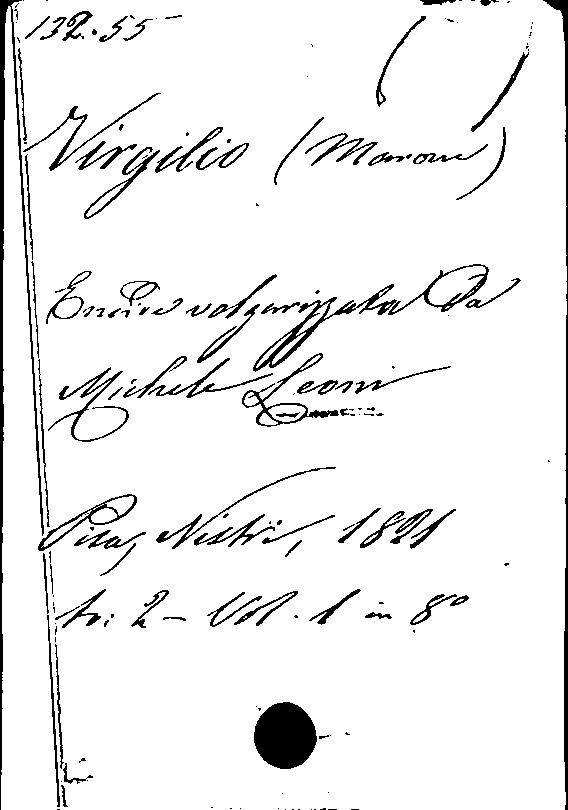 132.55
Virgilio (Marone)
Eneide volgarizzata da
Michele Leoni
Pisa, Nistri, 1821
to: 2 - Vol. 1 in 8º